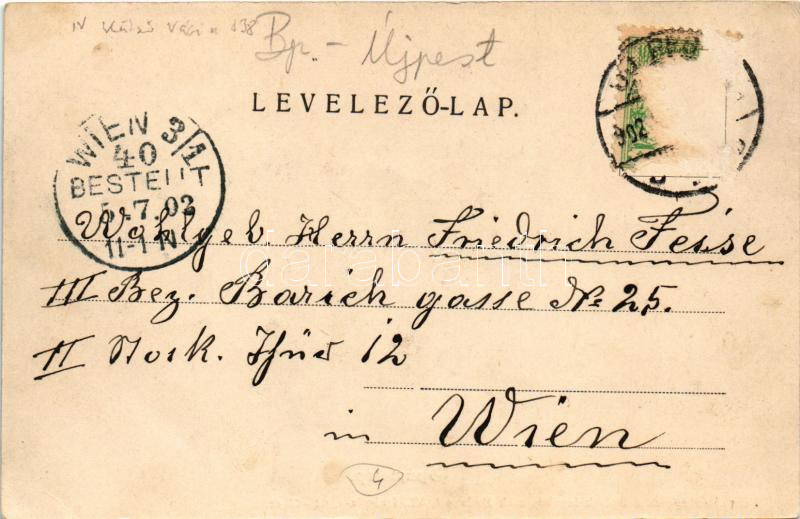 Bp. - Újpest
LEVELEZŐ-LAP.
WIEN 3/1
40
BESTELLT
5.7.02
11-1 N
902
Wohlgeb. Herrn Friedrich Feisse
III Bez. Barich gasse No 25.
II Stock. Thür 12
in Wien
4
darabanth